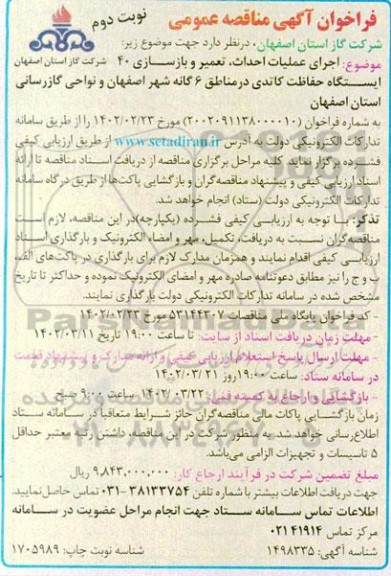 نوبت دوم
فراخوان آگهی مناقصه عمومی
شرکت گاز استان اصفهان، درنظر دارد جهت موضوع زیر:
شرکت گاز استان اصفهان
موضوع: اجرای عملیات احداث، تعمیر و بازسازی ۴۰
ایستگاه حفاظت کاتدی درمناطق ۶ گانه شهر اصفهان و نواحی گازرسانی
استان اصفهان
به شماره فراخوان (۲۰۰۲۰۹۱۱۳۸۰۰۰۰۱۰) مورخ ۱۴۰۲/۰۲/۲۳ را از طریق سامانه
تدارکات الکترونیکی دولت به آدرس www.setadiran.ir از طریق ارزیابی کیفی
فشرده برگزار نماید. کلیه مراحل برگزاری مناقصه از دریافت اسناد مناقصه تا ارائه
اسناد ارزیابی کیفی و پیشنهاد مناقصه‌گران و بازگشایی پاکت‌ها از طریق درگاه سامانه
تدارکات الکترونیکی دولت (ستاد) انجام خواهد شد.
تذکر: با توجه به ارزیابی کیفی فشرده (یکپارچه) در این مناقصه، لازم است
مناقصه‌گران نسبت به دریافت، تکمیل، مهر و امضاء الکترونیک و بارگذاری اسناد
ارزیابی کیفی اقدام نمایند و همزمان مدارک لازم برای بارگذاری در پاکت‌های الف،
ب و ج را نیز مطابق دعوتنامه صادره مهر و امضای الکترونیک نموده و حداکثر تا تاریخ
مشخص شده در سامانه تدارکات الکترونیکی دولت بارگذاری نمایند.
- کد فراخوان پایگاه ملی مناقصات ۵۳۱۴۴۳۰۷ مورخ ۱۴۰۲/۰۲/۲۳
- مهلت زمان دریافت اسناد از سایت: تا ساعت ۱۹:۰۰ تاریخ ۱۴۰۲/۰۳/۱۱
- مهلت ارسال پاسخ استعلام ارزیابی کیفی و ارائه مدارک و پیشنهاد قیمت
در سامانه ستاد: ساعت ۱۹:۰۰ روز ۱۴۰۲/۰۳/۲۱
- بازگشائی و ارجاع به کمیته فنی: ۱۴۰۲/۰۳/۲۲ ساعت ۹:۰۰ صبح
زمان بازگشایی پاکات مالی مناقصه‌گران حائز شرایط متعاقباً در سامانه ستاد
اطلاع‌رسانی خواهد شد. به‌منظور شرکت در این مناقصه، داشتن رتبه معتبر حداقل
۵ تاسیسات و تجهیزات الزامی می‌باشد.
مبلغ تضمین شرکت در فرآیند ارجاع کار: ۹,۸۴۳,۰۰۰,۰۰۰ ریال
جهت دریافت اطلاعات بیشتر با شماره تلفن ۳۸۱۳۳۷۵۴-۰۳۱ تماس حاصل‌نمایید.
اطلاعات تماس سامانه ستاد جهت انجام مراحل عضویت در سامانه
مرکز تماس ۰۲۱۴۱۹۱۴
شناسه آگهی: ۱۴۹۸۳۳۵
شناسه نوبت چاپ: ۱۷۰۵۹۸۹
ParsNamadData
۰۲۱-۸۸۳۴۹۶۷۰-۵